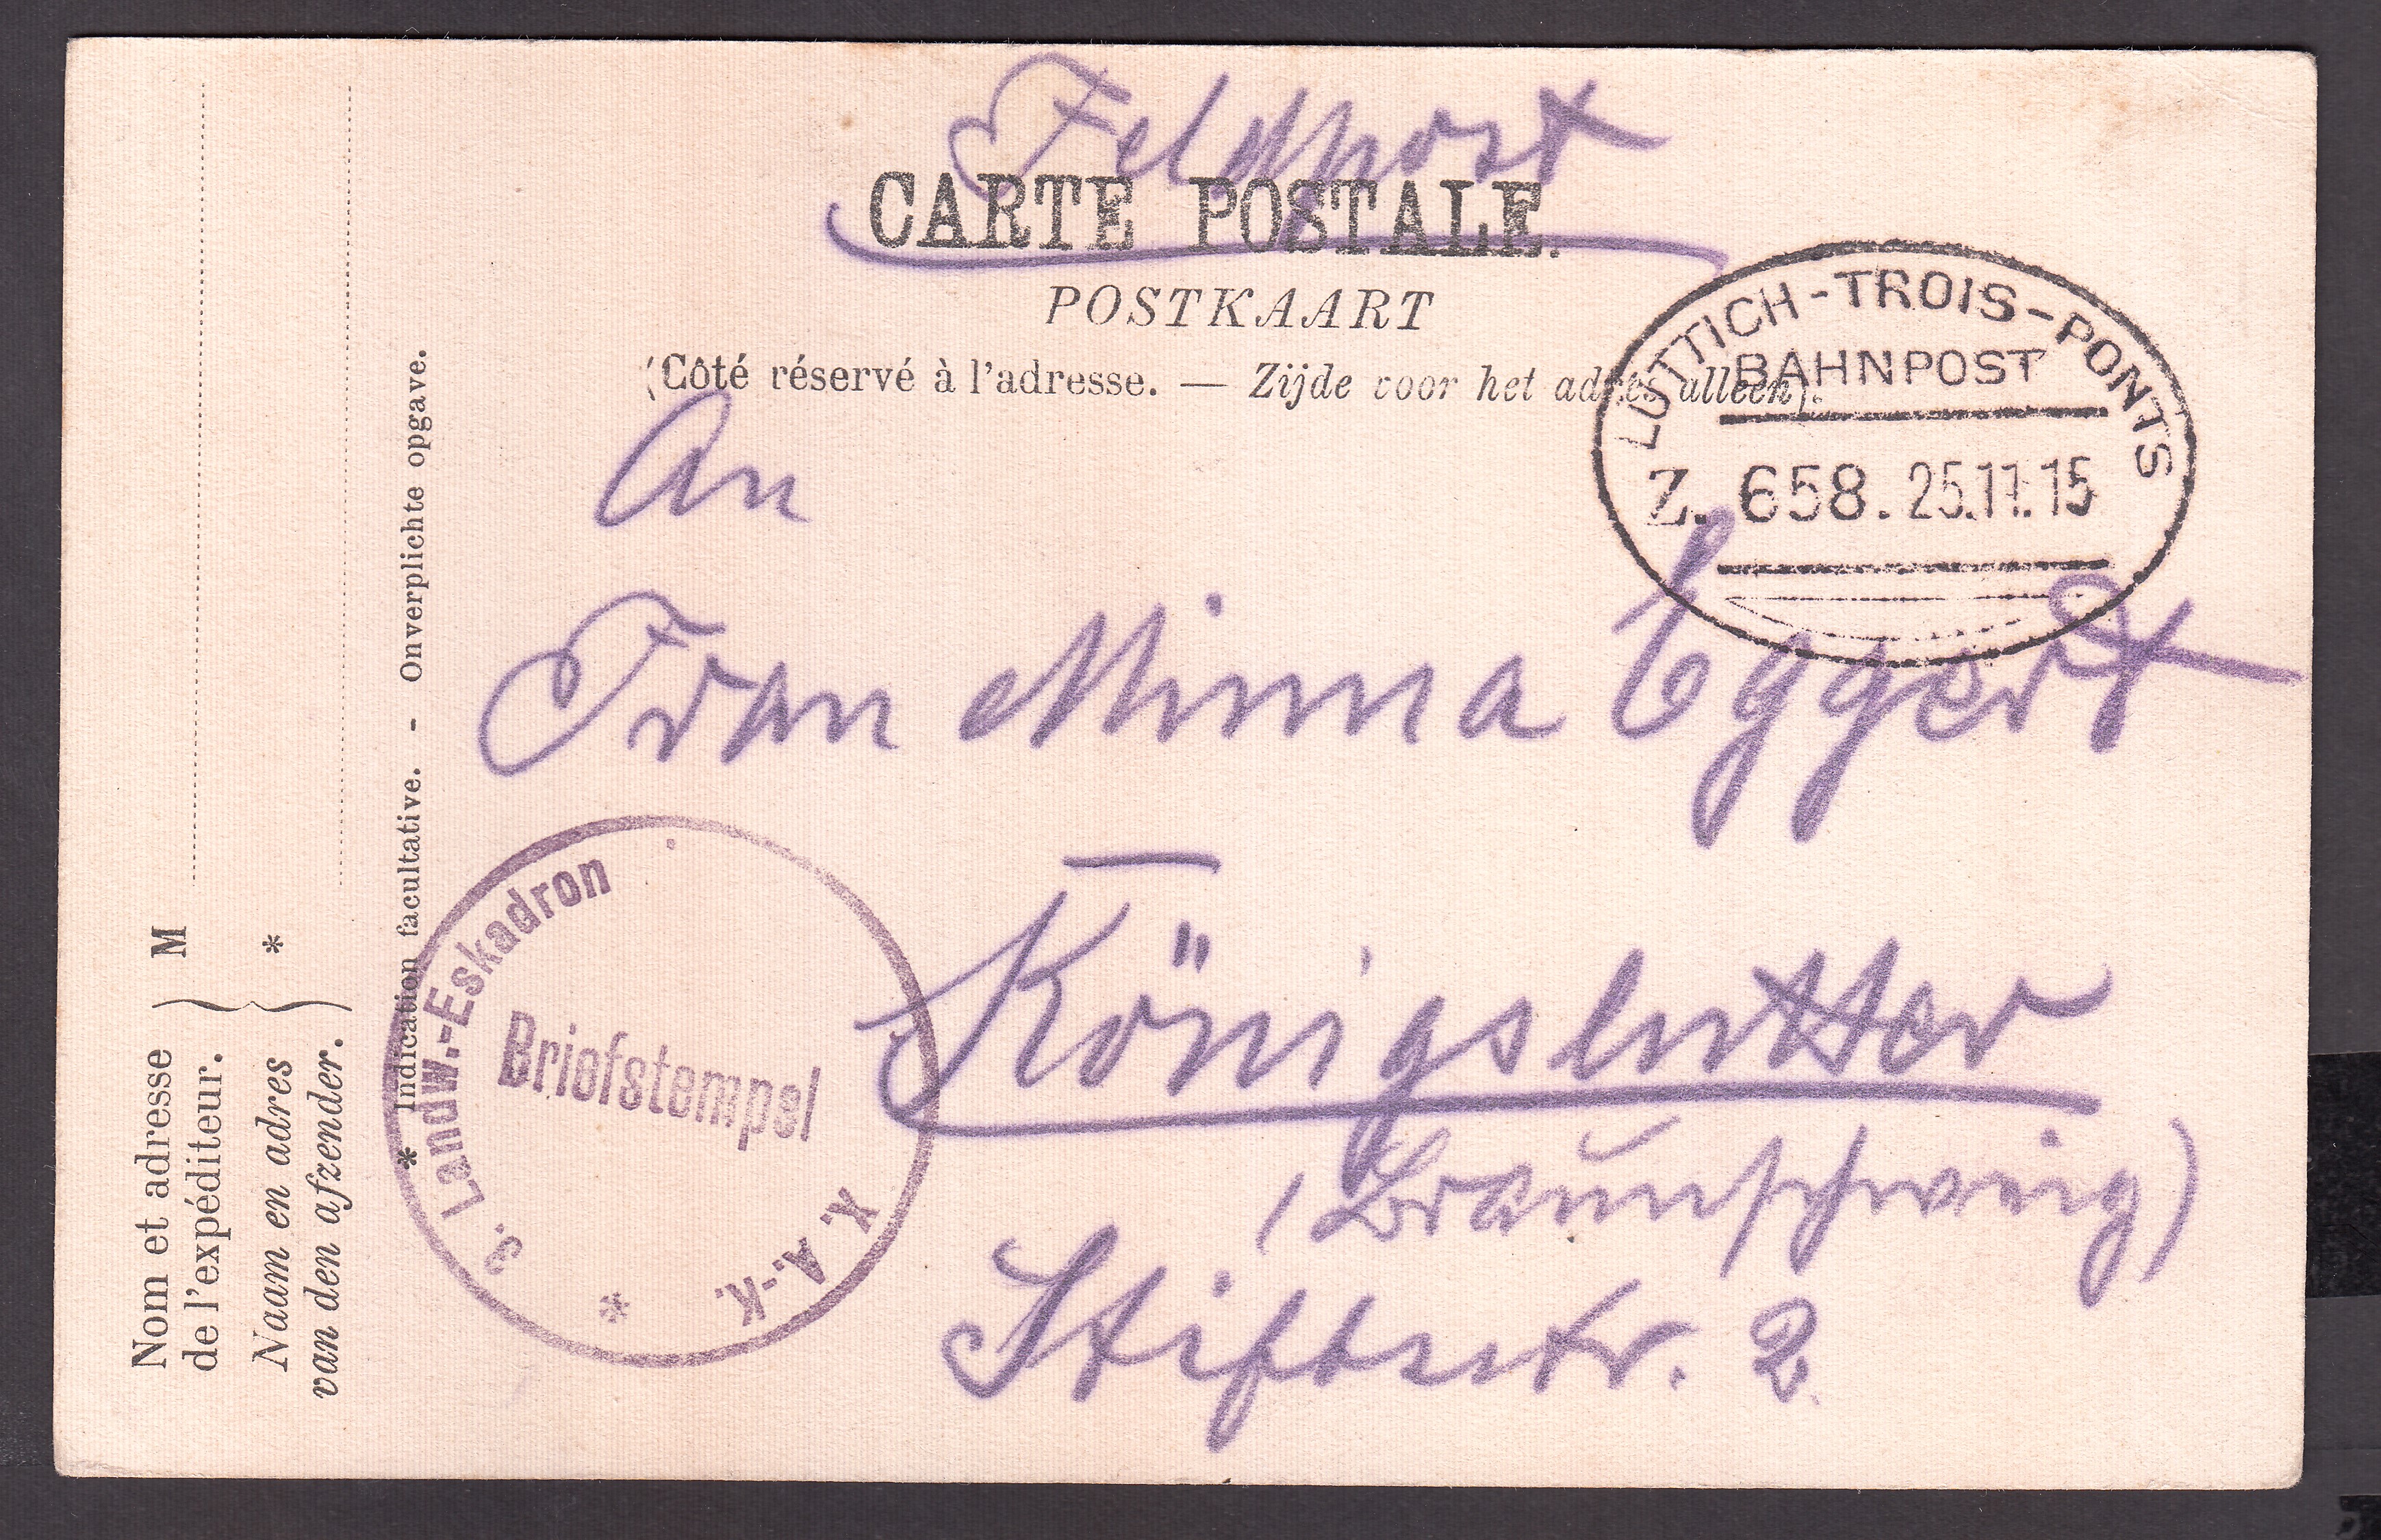 Feldpost
CARTE POSTALE.
POSTKAART
(Côté réservé à l'adresse. — Zijde voor het adres alleen).
LÜTTICH-TROIS-PONTS
BAHNPOST
Z. 658. 25.11.15
An
Frau Minna Eggert
Königslutter
(Braunschweig)
Stiftsstr. 2
3. Landw.-Eskadron
Briefstempel
X. A.-K.
*
Nom et adresse
de l'expéditeur. } M
Naam en adres
van den afzender. } *
* Indication facultative. - Onverplichte opgave.